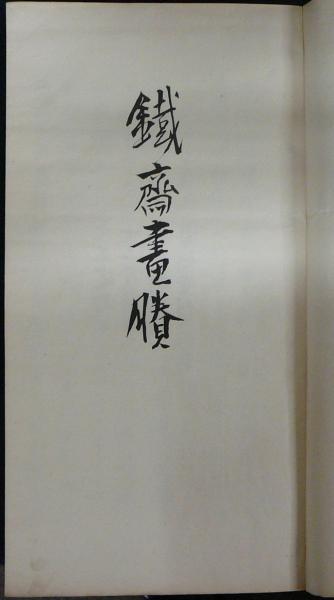 鐵齋畫賸